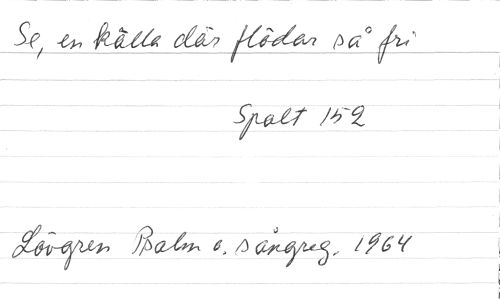 Se, en källa där flödar så fri
Spalt 152
Lövgren Psalm o. sångreg. 1964